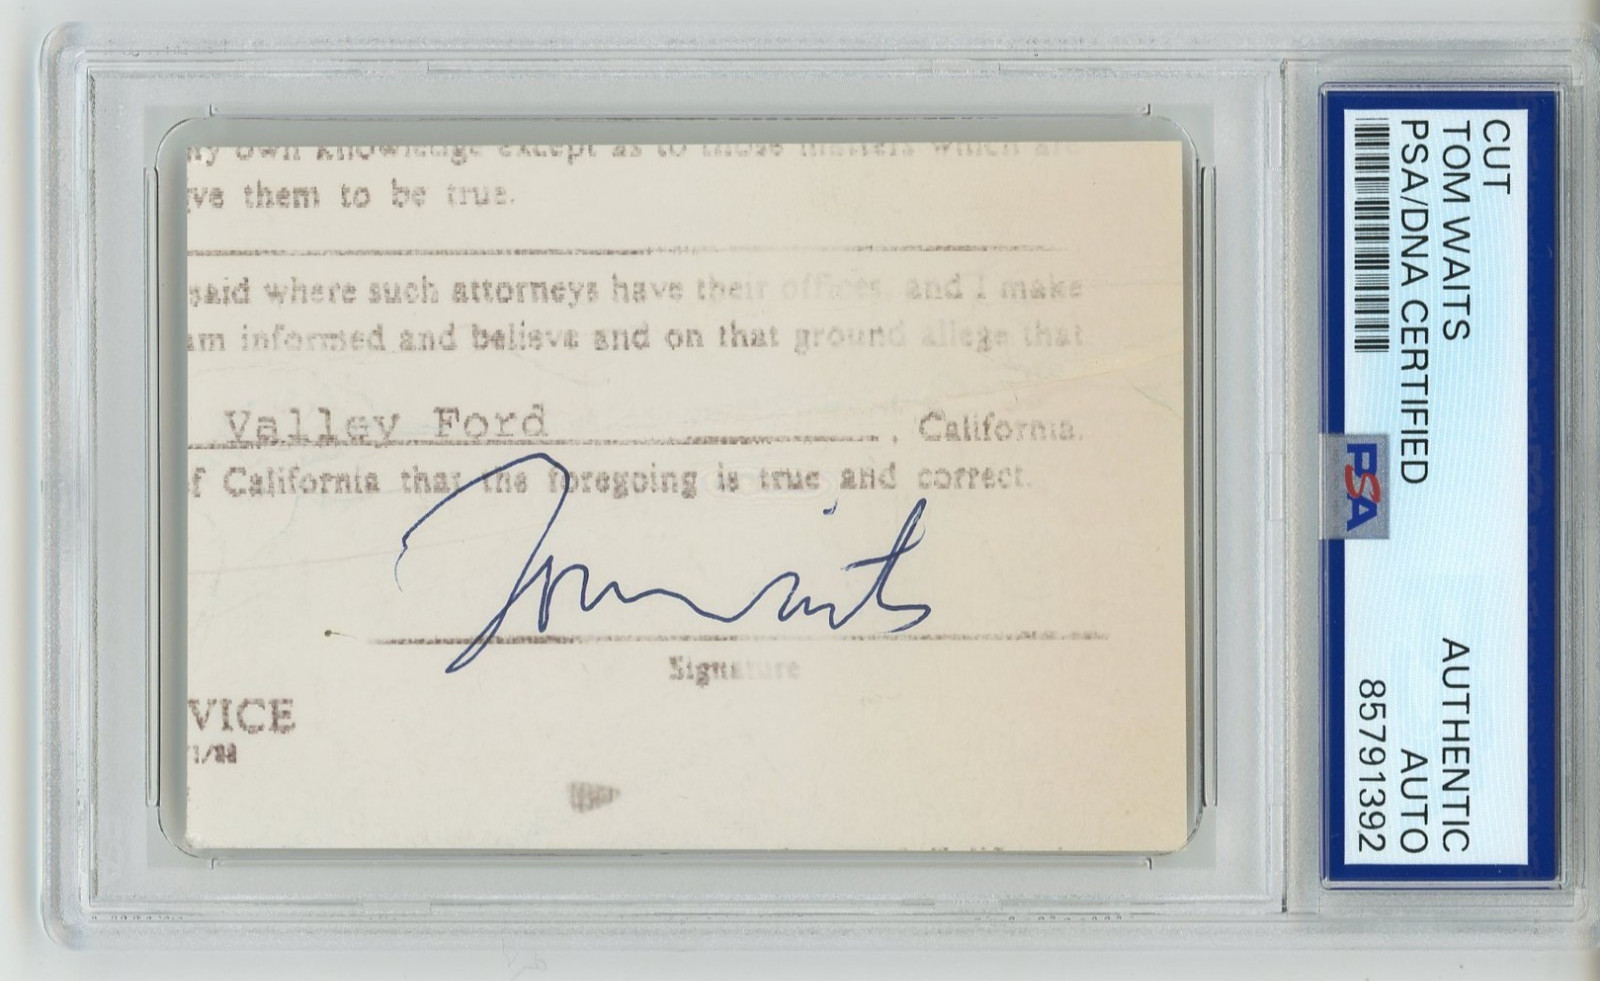 my own knowledge except as to those matters which are
ve them to be true.
said where such attorneys have their offices, and I make
am informed and believe and on that ground allege that
Valley Ford , California.
of California that the foregoing is true and correct.
Tom Waits
Signature
VICE
CUT
TOM WAITS
PSA/DNA CERTIFIED
PSA
AUTHENTIC
AUTO
85791392